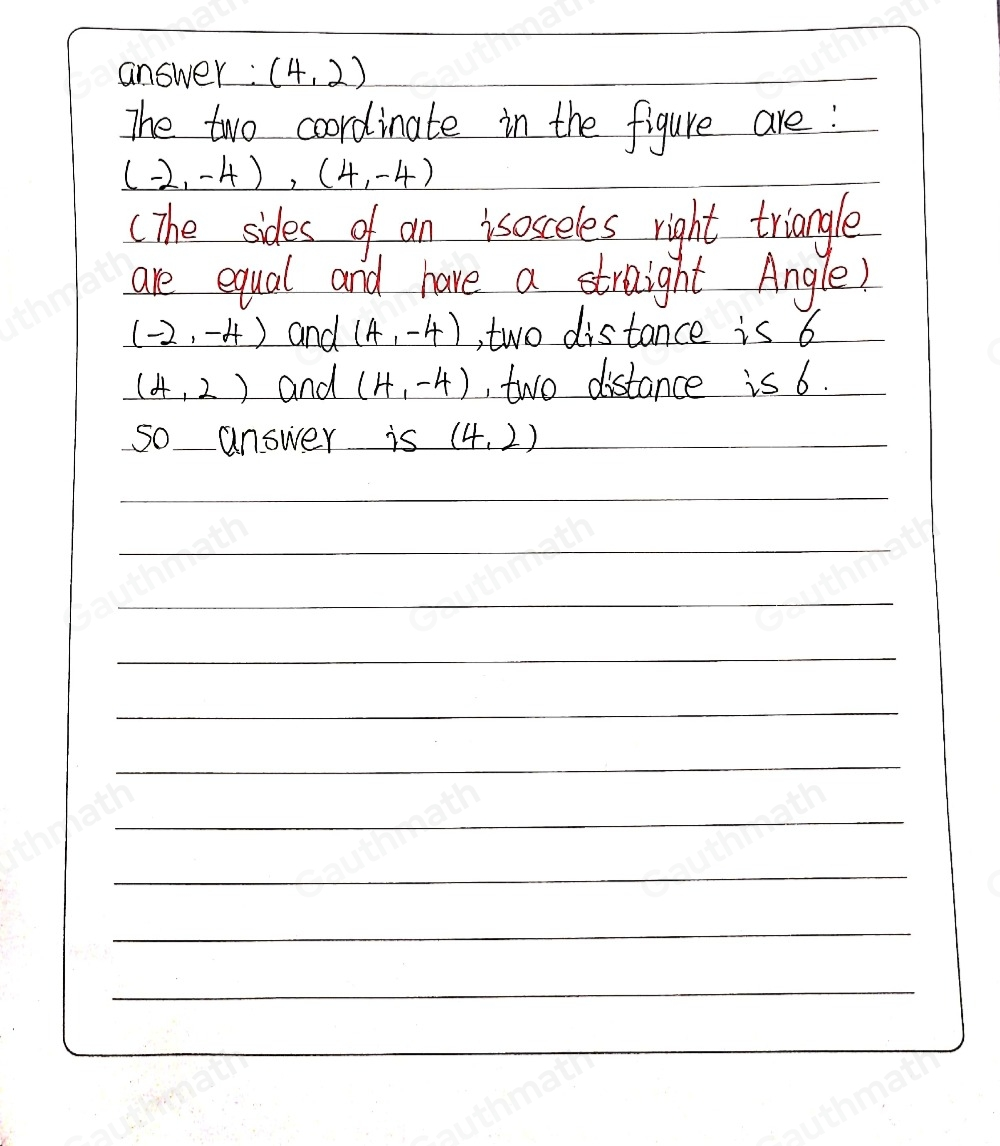 answer : (4,2)
The two coordinate in the figure are :
(-2,-4) , (4,-4)
(The sides of an isosceles right triangle
are equal and have a straight Angle)
(-2,-4) and (4,-4), two distance is 6
(4,2) and (4,-4), two distance is 6.
so answer is (4,2)
Gauthmath